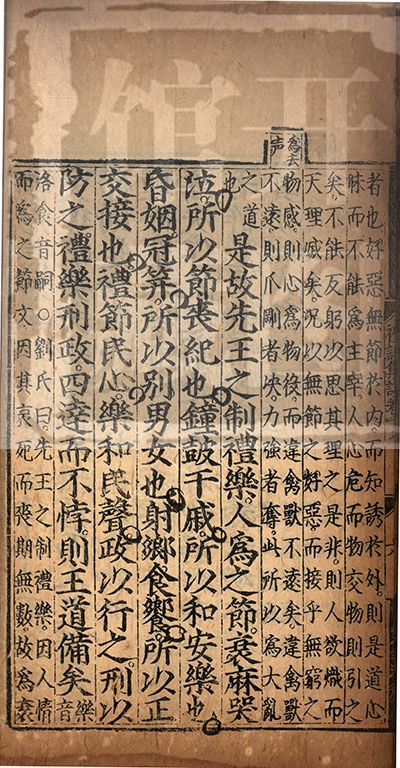 為去
声
者也好惡無節於內而知誘於外則是道心
昧而不能為主宰人心危而物交物則引之
矣不能反躬以思其理之是非則人欲熾而
天理滅矣况以無節之好惡而接乎無窮之
物感則心為物役而違禽獸不遠矣違禽獸
不遠則爪剛者决力強者奪此所以為大亂
之道
也
是故先王之制禮樂人為之節衰麻哭
泣所以節喪紀也鐘鼓干戚所以和安樂也
昏姻冠笄所以別男女也射鄉食饗所以正
交接也禮節民心樂和民聲政以行之刑以
防之禮樂刑政四達而不悖則王道備矣
樂
音
洛食音嗣○劉氏曰先王之制禮樂因人情
而為之節文因其哀死而喪期無數故為衰